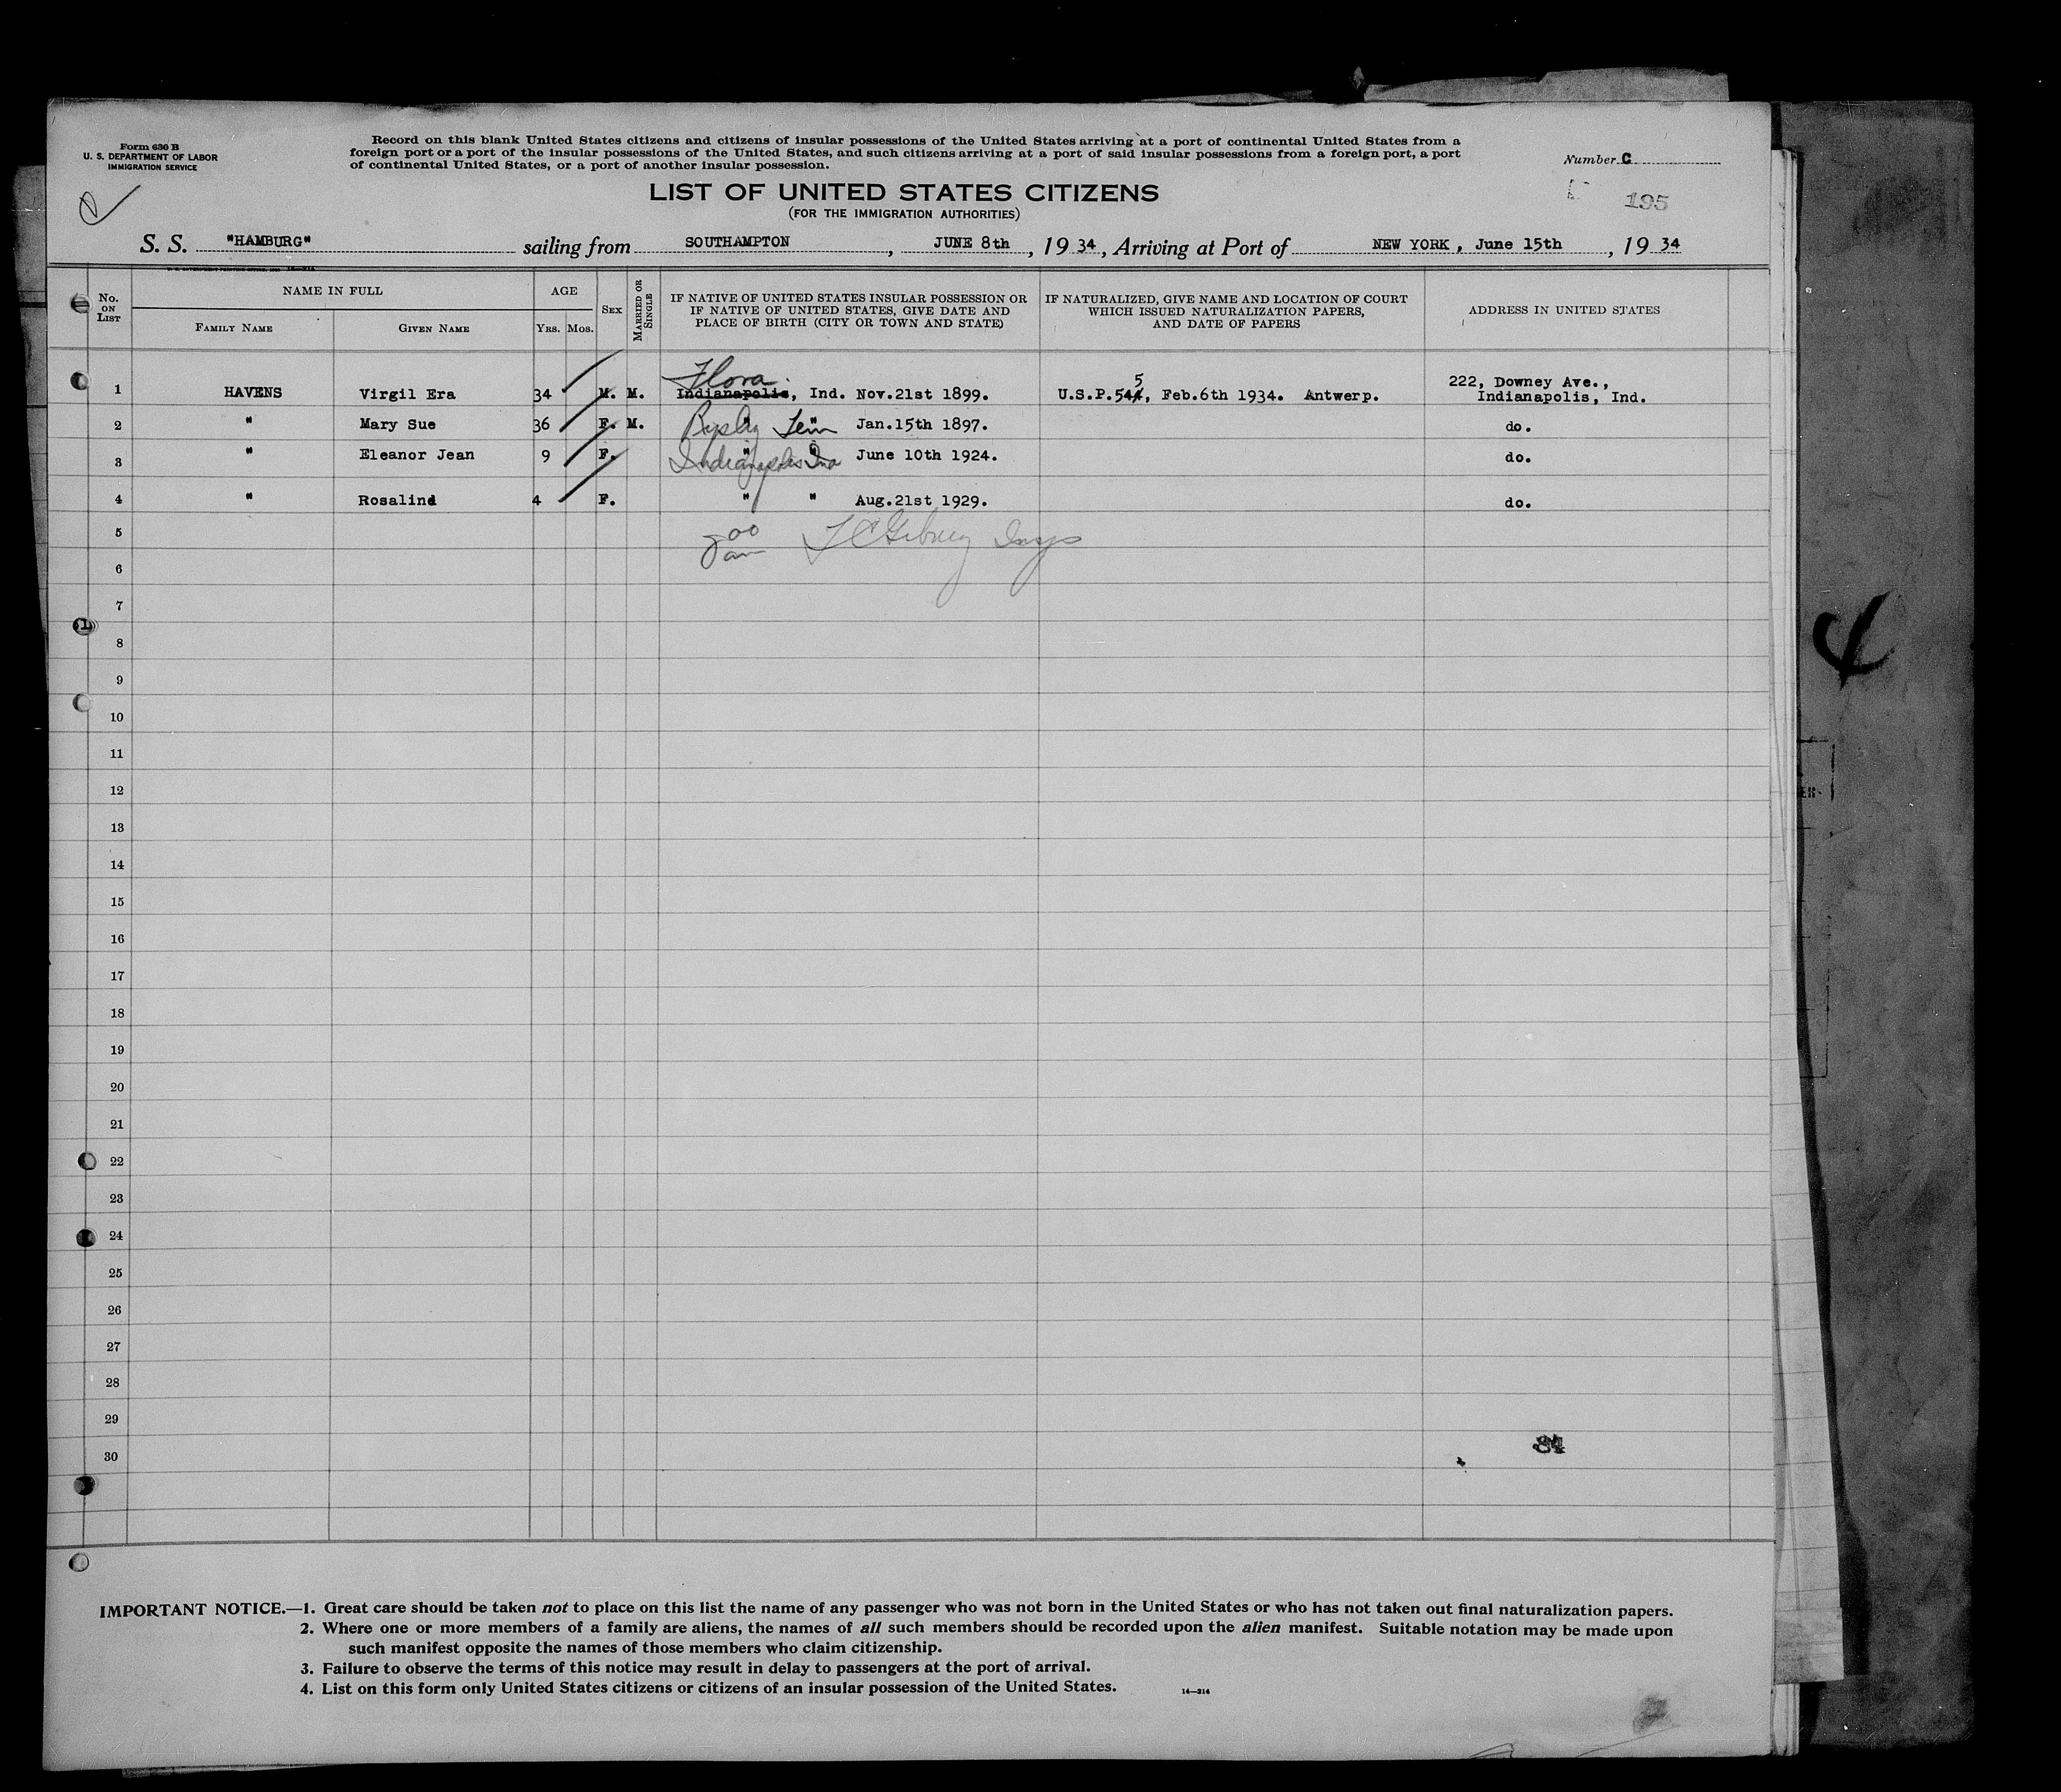 Form 630 B
U. S. DEPARTMENT OF LABOR
IMMIGRATION SERVICE
Record on this blank United States citizens and citizens of insular possessions of the United States arriving at a port of continental United States from a
foreign port or a port of the insular possessions of the United States, and such citizens arriving at a port of said insular possessions from a foreign port, a port
of continental United States, or a port of another insular possession.
Number C
195
LIST OF UNITED STATES CITIZENS
(FOR THE IMMIGRATION AUTHORITIES)
S. S. "HAMBURG" sailing from SOUTHAMPTON, JUNE 8th, 19 34, Arriving at Port of NEW YORK, June 15th, 19 34
No. ON LIST NAME IN FULL FAMILY NAME GIVEN NAME AGE YRS. MOS. SEX MARRIED OR SINGLE IF NATIVE OF UNITED STATES INSULAR POSSESSION OR IF NATIVE OF UNITED STATES, GIVE DATE AND PLACE OF BIRTH (CITY OR TOWN AND STATE) IF NATURALIZED, GIVE NAME AND LOCATION OF COURT WHICH ISSUED NATURALIZATION PAPERS, AND DATE OF PAPERS ADDRESS IN UNITED STATES
Flora
1 HAVENS Virgil Era 34 M. M. Indianapolis, Ind. Nov.21st 1899. U.S.P.545, Feb.6th 1934. Antwerp. 222, Downey Ave., Indianapolis, Ind.
2 " Mary Sue 36 F. M. " " Tenn Jan.15th 1897. do.
3 " Eleanor Jean 9 F. " " Indianapolis Ind June 10th 1924. do.
4 " Rosalind 4 F. " " Aug.21st 1929. do.
5
6
7
8
9
10
11
12
13
14
15
16
17
18
19
20
21
22
23
24
25
26
27
28
29
30
IMPORTANT NOTICE.—1. Great care should be taken not to place on this list the name of any passenger who was not born in the United States or who has not taken out final naturalization papers.
2. Where one or more members of a family are aliens, the names of all such members should be recorded upon the alien manifest. Suitable notation may be made upon
such manifest opposite the names of those members who claim citizenship.
3. Failure to observe the terms of this notice may result in delay to passengers at the port of arrival.
4. List on this form only United States citizens or citizens of an insular possession of the United States.
14—214